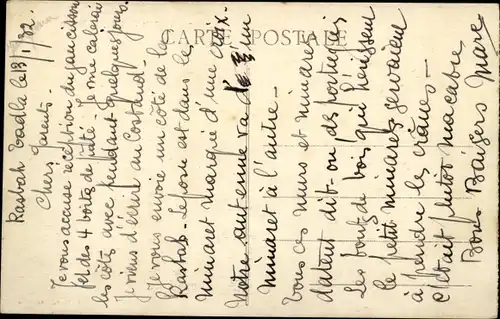 CARTE POSTALE
Kasbah Tadla le 13/1/32.
Chers Parents.
Je vous accuse réception du saucisson
et des 4 boîtes de pâté. Je me calerai
les côtés avec pendant quelques jours.
Je viens d'écrire au
Je vous envoie un côté de la
Kasbah. Le poste est dans le
minaret marqué d'une croix.
Notre antenne va d'un
minaret à l'autre.
Tous ces murs et minarets
datent dit-on des portugais
Les bouts de bois qui hérissent
le petit minaret servaient
à pendre les crânes.
c'était plutôt macabre
Bons Baisers Marc